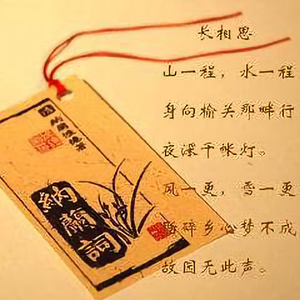 长相思
山一程，水一程
身向榆关那畔行
夜深千帐灯。
风一更，雪一更
碎乡心梦不成
故园无此声。
納蘭詞